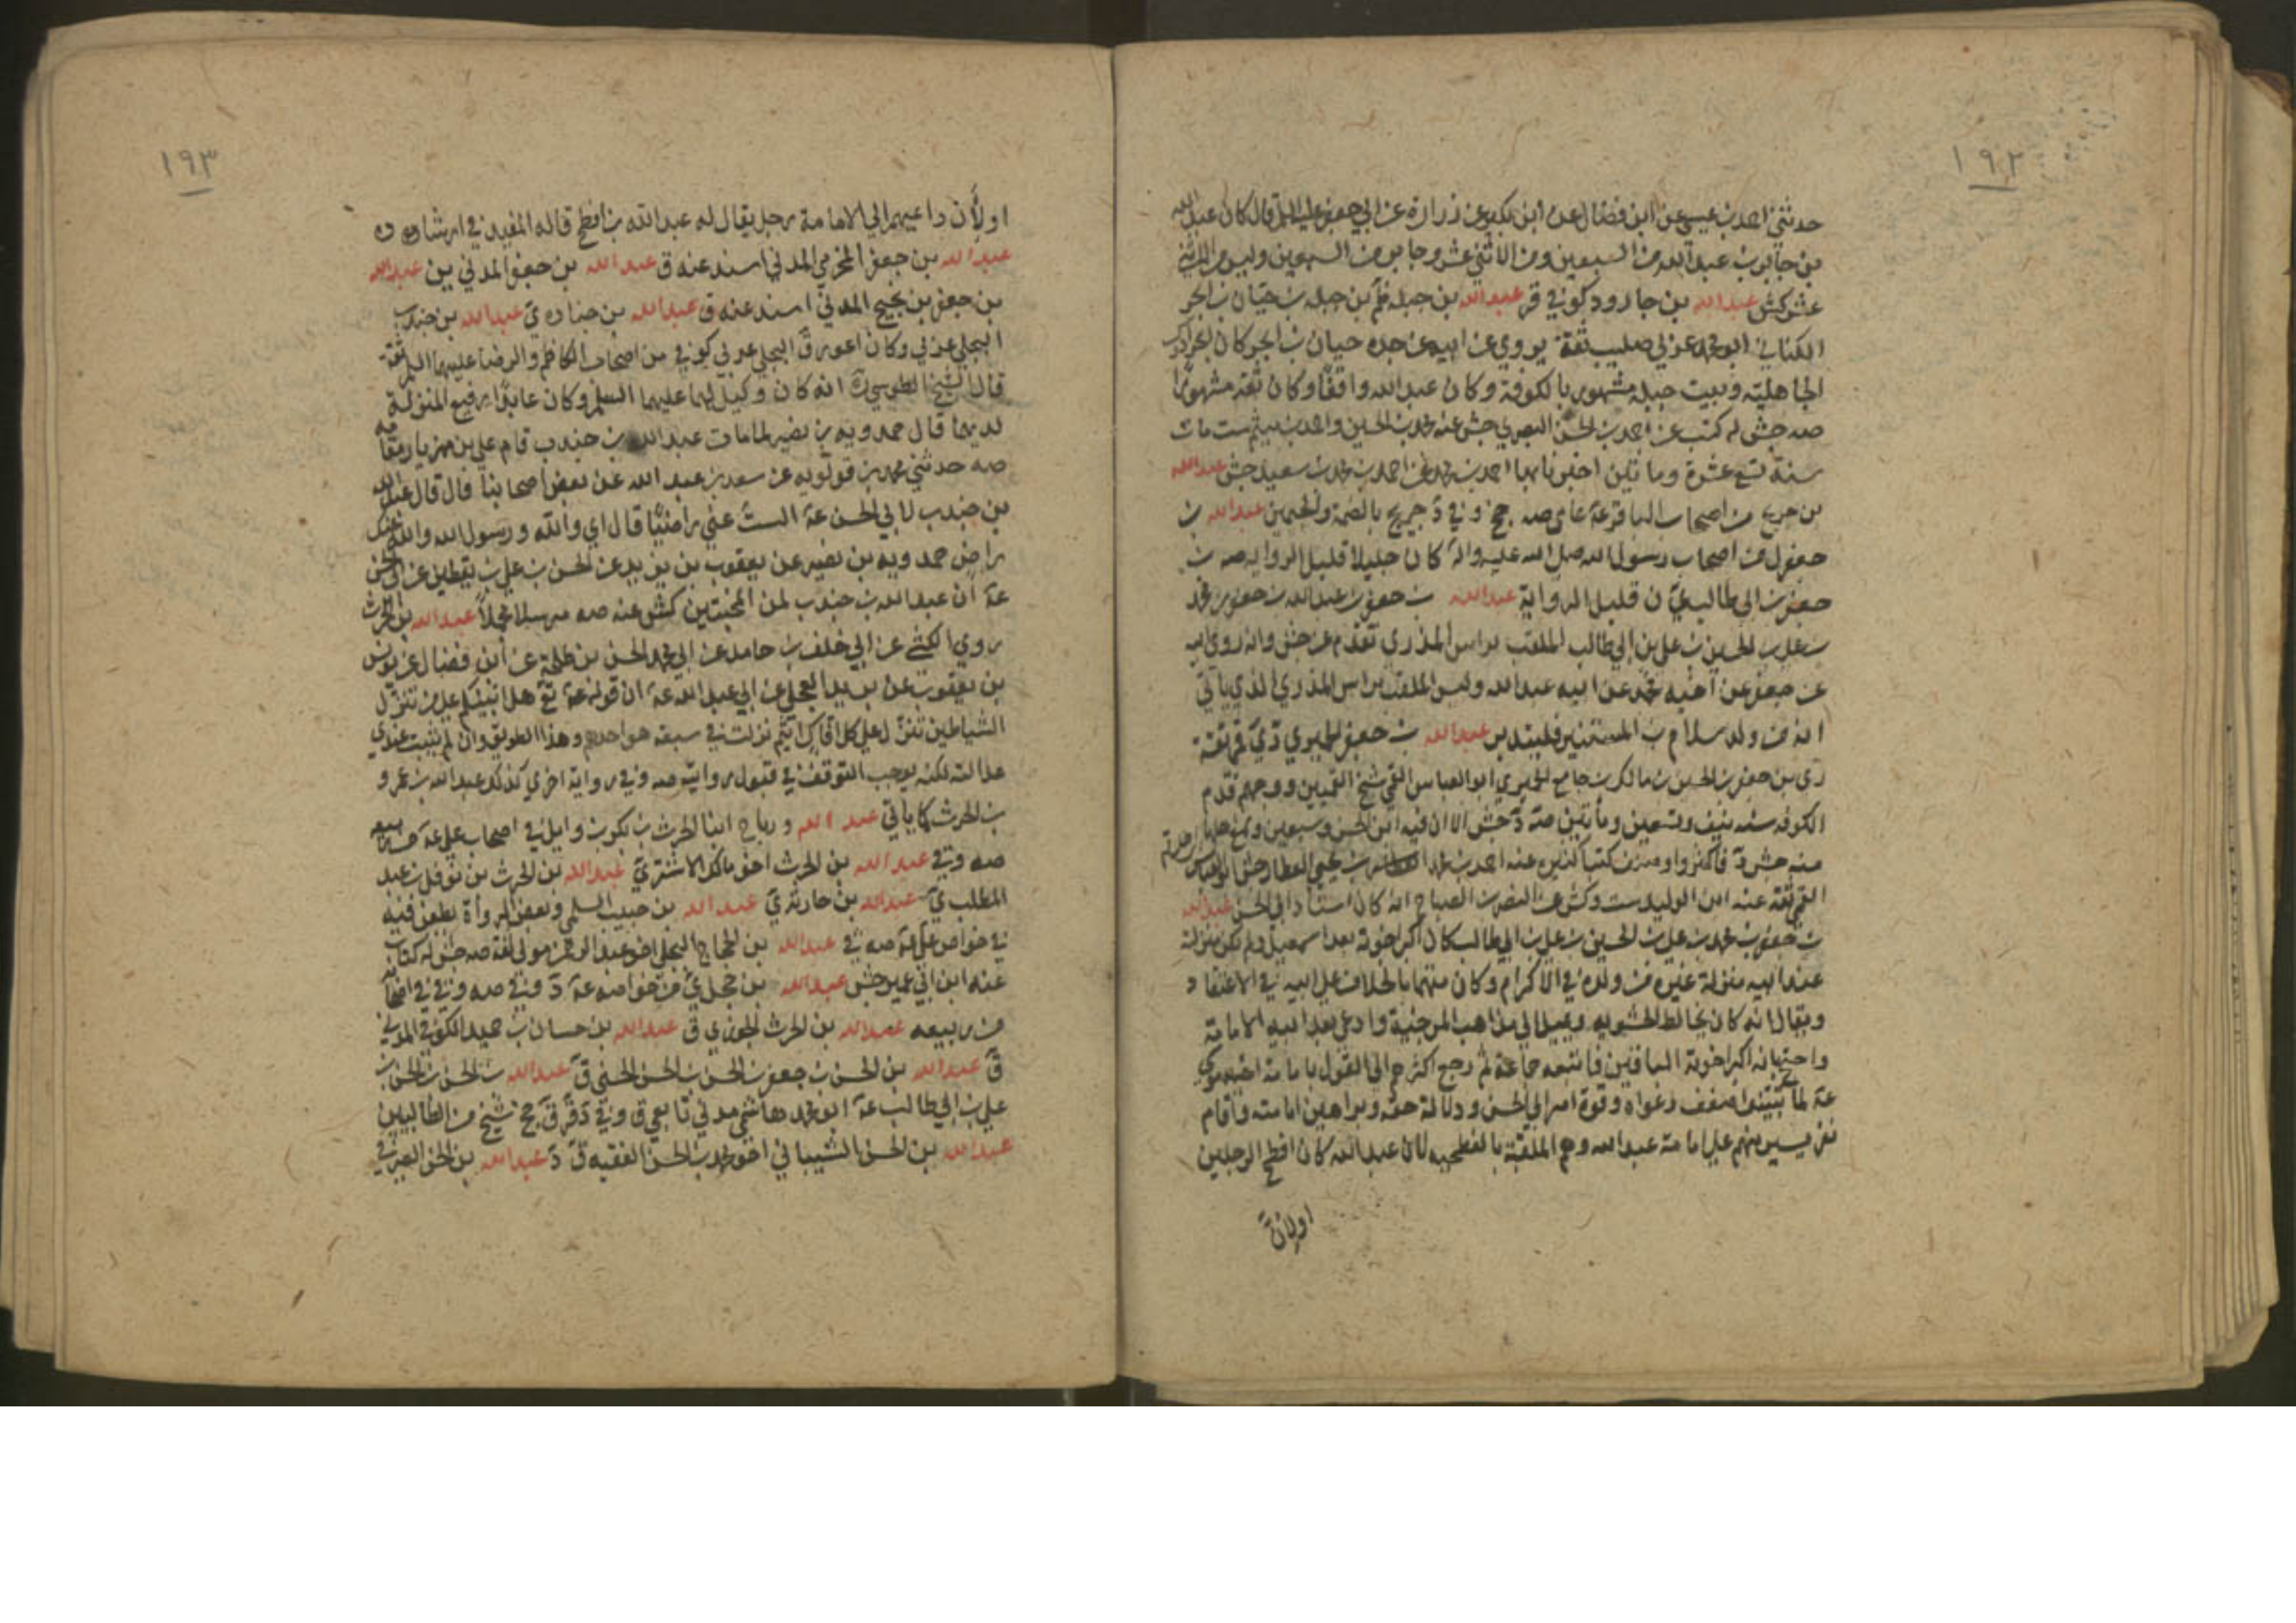 ١٩٢
حدثني احمد بن عيسى عن ابن فضال عن ابن بكير عن زرارة عن ابي جعفر عليه السلم قال كان عبد الله
بن جابر بن عبد الله من السبعين ومن الاثني عشر وجابر من السبعين وليس من الاثني
عشر كش عبد الله بن جارود كوفي قر عبد الله بن جبله ظم بن جبله بن حيان بن ابجر
الكناني ابو محمد عربي صليب ثقة يروي عن ابيه عن جده حيان بن ابجر كان ابجر ادرك
الجاهلية وبيت جبله مشهور بالكوفة وكان عبد الله واقفا وكان ثقة مشهورا
صه جش له كتب عن احمد بن الحسن البصري جش عنه محمد بن الحسين واحمد بن ميثم ست مات
سنة تسع عشرة ومائتين اخبرنا بها احمد بن محمد عن احمد بن محمد بن سعيد جش عبد الله
بن جريح من اصحاب الباقر عة عامي صه جخ وفي د جريج بالضم والجيمين عبد الله بن
جعفر ل من اصحاب رسول الله صلى الله عليه وآله كان جليلا قليل الرواية صه بن
جعفر بن ابي طالب ي ن قليل الرواية عبد الله بن جعفر بن عبد الله بن جعفر بن محمد
بن علي بن الحسين بن علي بن ابي طالب الملقب براس المذري تقدم عن جش وانه روى ابيه
عن جعفر عن اخيه محمد عن ابيه عبد الله وليس الملقب براس المذري الذي ياتي
انه من ولد سلام بن المستنير فليتدبر عبد الله بن جعفر الحميري دي قمي ثقة
ري بن جعفر بن الحسين بن مالك بن جامع الحميري ابو العباس القمي شيخ القميين ووجههم قدم
الكوفه سنه نيف وتسعين ومأتين صه د جش الا ان فيه ابن الحسن وسبعين وسمع اهلها
منه جش د فاكثروا وصنف كتبا كثيره عنه احمد بن محمد بن يحيى العطار جش ابو العباس
القمي ثقة عنه ابن الوليد ست وكش عن النضر بن الصباح انه كان استاد ابي الحسن عبد الله
بن جعفر بن محمد بن علي بن الحسين بن علي بن ابي طالب كان اكبر اخوته بعد اسمعيل ولم تكن منزلته
عند ابيه منزلة غيره من ولده في الاكرام وكان متهما بالخلاف على ابيه في الاعتقاد
ويقال انه كان يخالط الحشويه ويميل الى مذاهب المرجئة وادعى بعد ابيه الامامة
واحتج بانه اكبر اخوته الباقين فاتبعه جماعة ثم رجع اكثرهم الى القول بامامة اخيه موسى
عة لما تبينوا ضعف دعواه وقوة امر ابي الحسن ودلالة حقه وبراهين امامته فاقام
نفر يسير منهم على امامة عبد الله وهم الملقبة بالفطحيه لان عبد الله كان افطح الرجلين
اولأن
١٩٣
اولأن داعيهم الى الامامة رجل يقال له عبد الله بن افطح قاله المفيد في ارشاده
عبد الله بن جعفر المخرمي المدني اسند عنه ق عبد الله بن جعفر المدني ين عبد الله
بن جعفر بن نجيح المدني اسند عنه ق عبد الله بن جناده ي عبد الله بن جندب
البجلي عربي وكان اعور ق البجلي عربي كوفي من اصحاب الكاظم والرضا عليهما السلم ثقة
قال الشيخ الطوسي ره انه كان وكيل لهما عليهما السلم وكان عابدا رفيع المنزلة
لديهما قال حمدويه بن نصير لما مات عبد الله بن جندب قام علي بن مهزيار مقامه
صه حدثني محمد بن قولويه عن سعد بن عبد الله عن بعض اصحابنا قال قال عبد الله
بن جندب لابي الحسن عة الست عني راضيا قال اي والله ورسول الله والله عنك
راض حمدويه بن نصير عن يعقوب بن يزيد عن الحسن بن علي بن يقطين عن ابي الحسن
عة ان عبد الله بن جندب لمن المخبتين كش عنه صه مرسلا مجملا عبد الله بن الحرث
روى الكشي عن ابي خلف بن حامد عن ابي محمد الحسن بن طلحة عن ابن فضال عن يونس
بن يعقوب عن بريد العجلي عن ابي عبد الله عة ان قوله تع هل انبئكم على من تنزل
الشياطين تنزل على كل افاك اثيم نزلت في سبعه هو احدهم وهذا الطريق وان لم يثبت عندي
عدالته لكنه يوجب التوقف في قبول روايته صه وفي رواية اخرى كذلك عبد الله بن عمرو
بن الحرث كما ياتي عبد الله ورباح ابنا الحرث بن بكر بن وايل في اصحاب علي عة من ربيعه
صه وفي عبد الله بن الحرث اخو مالك الاشتر ي عبد الله بن الحرث بن نوفل بن عبد
المطلب ي عبد الله بن حارثة ي عبد الله بن حبيب السلمي وبعض الرواة يطعن فيه
في خواص علي عة صه ي عبد الله بن الحجاج البجلي اخو عبد الرحمن مولى ثقة صه جش له كتاب
عنه ابن ابي عمير جش عبد الله بن حجل ي من خواصه عة د وفي صه وفي في اصحابه
من ربيعه عبد الله بن الحرث الجوزي ق عبد الله بن حسان بن حميد الكوفي المدني
ق عبد الله بن الحسن بن جعفر بن الحسن بن الحسن الحسني ق عبد الله بن الحسن بن الحسن بن
علي بن ابي طالب عة ابو محمد هاشمي مدني تابعي ق وفي د قر ق جخ شيخ من الطالبيين
عبد الله بن الحسن الشيباني اخو محمد بن الحسن الفقيه ق د عبد الله بن الحسن الصيرفي